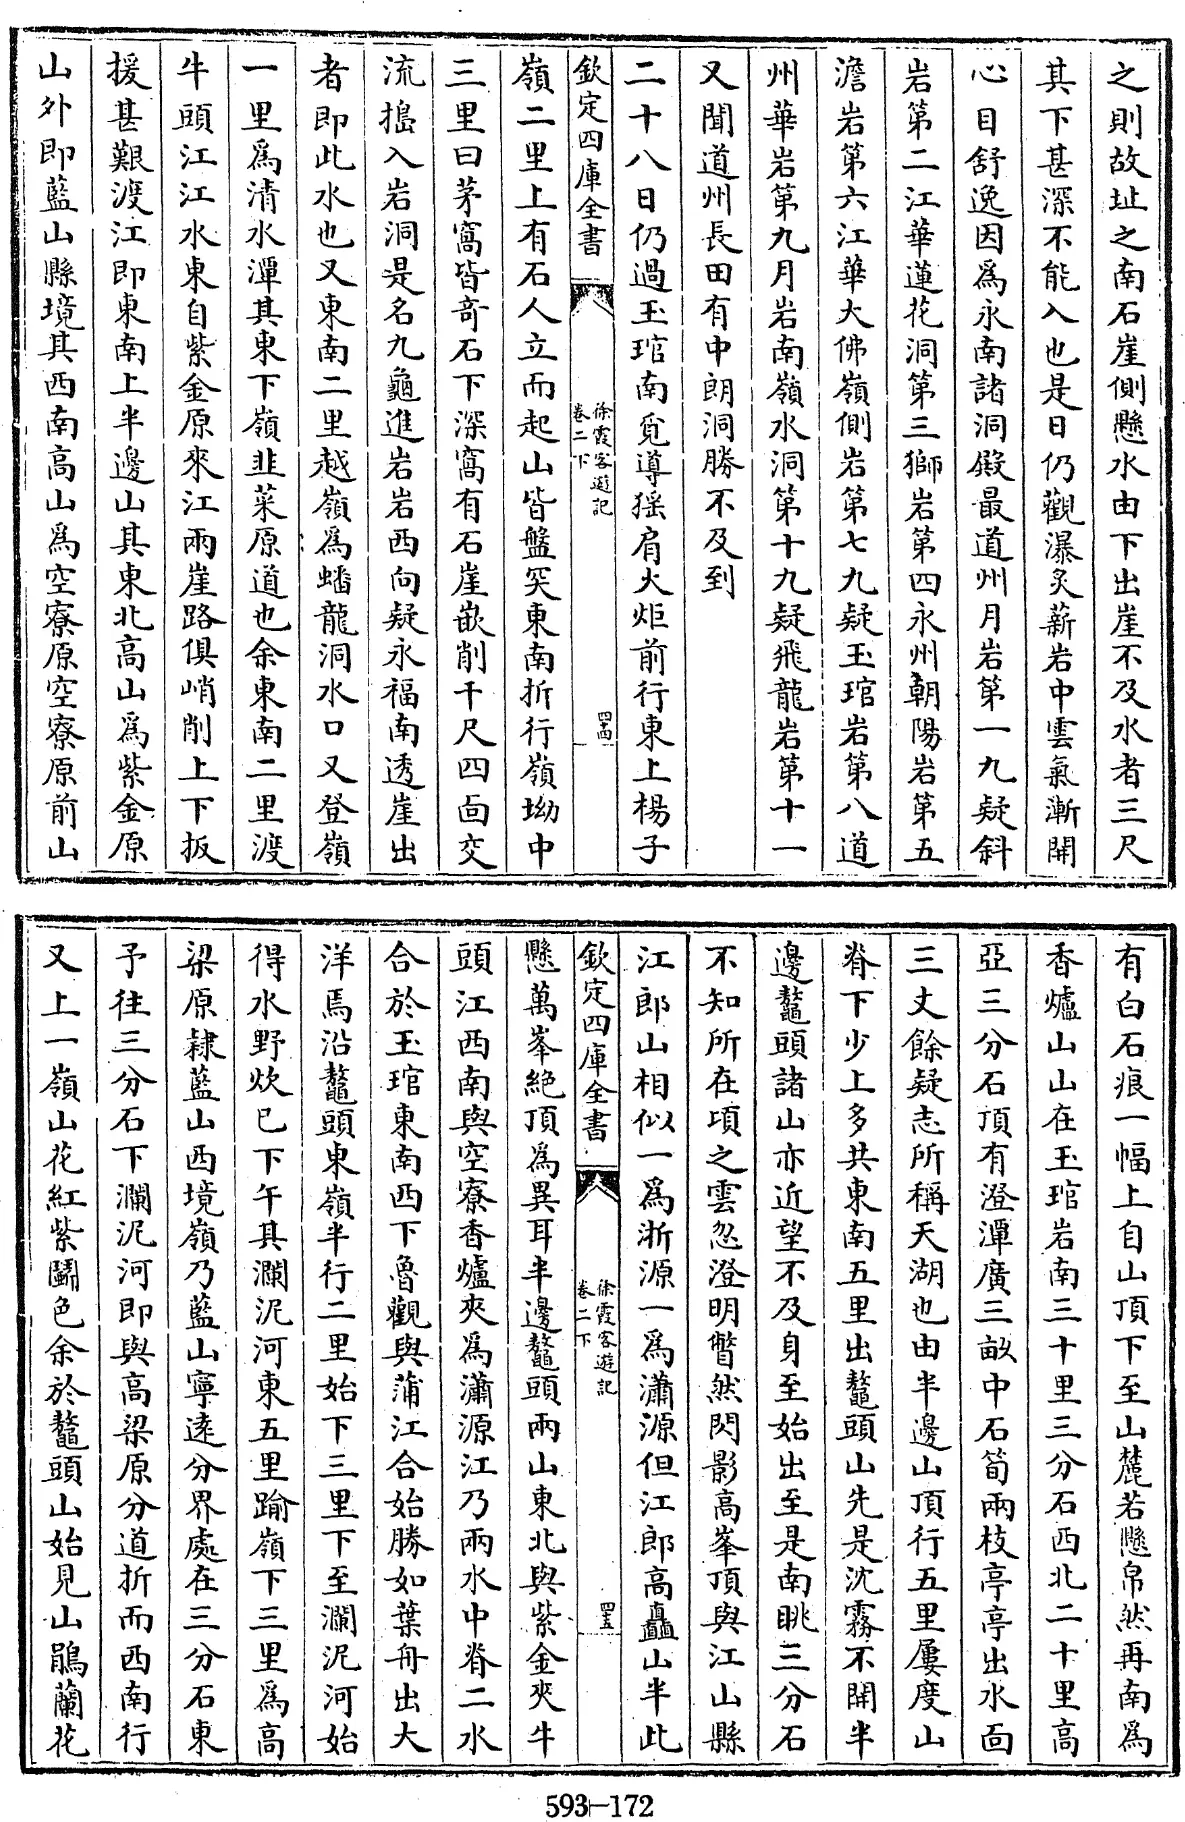 之則故址之南石崖側懸水由下出崖不及水者三尺
其下甚深不能入也是日仍觀瀑炙薪岩中雲氣漸開
心目舒逸因爲永南諸洞殿最道州月岩第一九疑斜
岩第二江華蓮花洞第三獅岩第四永州朝陽岩第五
澹岩第六江華大佛嶺側岩第七九疑玉琯岩第八道
州華岩第九月岩南嶺水洞第十九疑飛龍岩第十一
又聞道州長田有中朗洞勝不及到
二十八日仍過玉琯南覓導猺肩火炬前行東上楊子
欽定四庫全書
徐霞客遊記
卷二下
四十四
嶺二里上有石人立而起山皆盤突東南折行嶺坳中
三里曰茅窩皆奇石下深窩有石崖嵌削千尺四面交
流搗入岩洞是名九龜進岩岩西向疑永福南透崖出
者即此水也又東南二里越嶺爲蟠龍洞水口又登嶺
一里爲清水潭其東下嶺韭菜原道也余東南二里渡
牛頭江江水東自紫金原來江兩崖路俱峭削上下扳
援甚艱渡江即東南上半邊山其東北高山爲紫金原
山外即藍山縣境其西南高山爲空寮原空寮原前山
有白石痕一幅上自山頂下至山麓若懸帛然再南爲
香爐山山在玉琯岩南三十里三分石西北二十里高
亞三分石頂有澄潭廣三畝中石筍兩枝亭亭出水面
三丈餘疑志所稱天湖也由半邊山頂行五里屢度山
脊下少上多共東南五里出鼇頭山先是沈霧不開半
邊鼇頭諸山亦近望不及身至始出至是南眺三分石
不知所在頃之雲忽澄明瞥然閃影高峯頂與江山縣
江郎山相似一爲浙源一爲瀟源但江郎高矗山半此
欽定四庫全書
徐霞客遊記
卷二下
四十五
懸萬峯絶頂爲異耳半邊鼇頭兩山東北與紫金夾牛
頭江西南與空寮香爐夾爲瀟源江乃兩水中脊二水
合於玉琯東南西下魯觀與蒲江合始勝如葉舟出大
洋焉沿鼇頭東嶺半行二里始下三里下至瀾泥河始
得水野炊已下午其瀾泥河東五里踰嶺下三里爲高
梁原隸藍山西境嶺乃藍山寧遠分界處在三分石東
予往三分石下瀾泥河即與高梁原分道折而西南行
又上一嶺山花紅紫鬭色余於鼇頭山始見山鵑蘭花
593-172